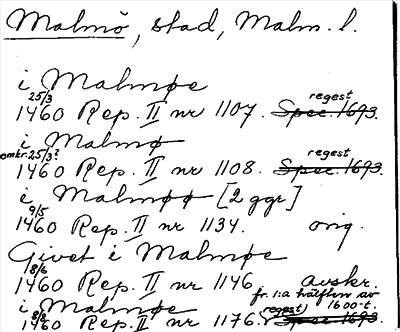 Malmö, stad, Malm. l.
i Malmøe
25/3 regest
1460 Rep. II nr 1107. Spec. 1693.
i Malmø
omkr. 25/3? regest
1460 Rep. II nr 1108. Spec. 1693.
i Malmøø [2 ggr]
9/5
1460 Rep. II nr 1134. orig.
Givet i Malmøe
18/6
1460 Rep. II nr 1146 avskr.
fr. 1:a hälften av
i Malmøe regest) 1600-t.
8/8
1460 Rep. II nr 1176. Spec 1693